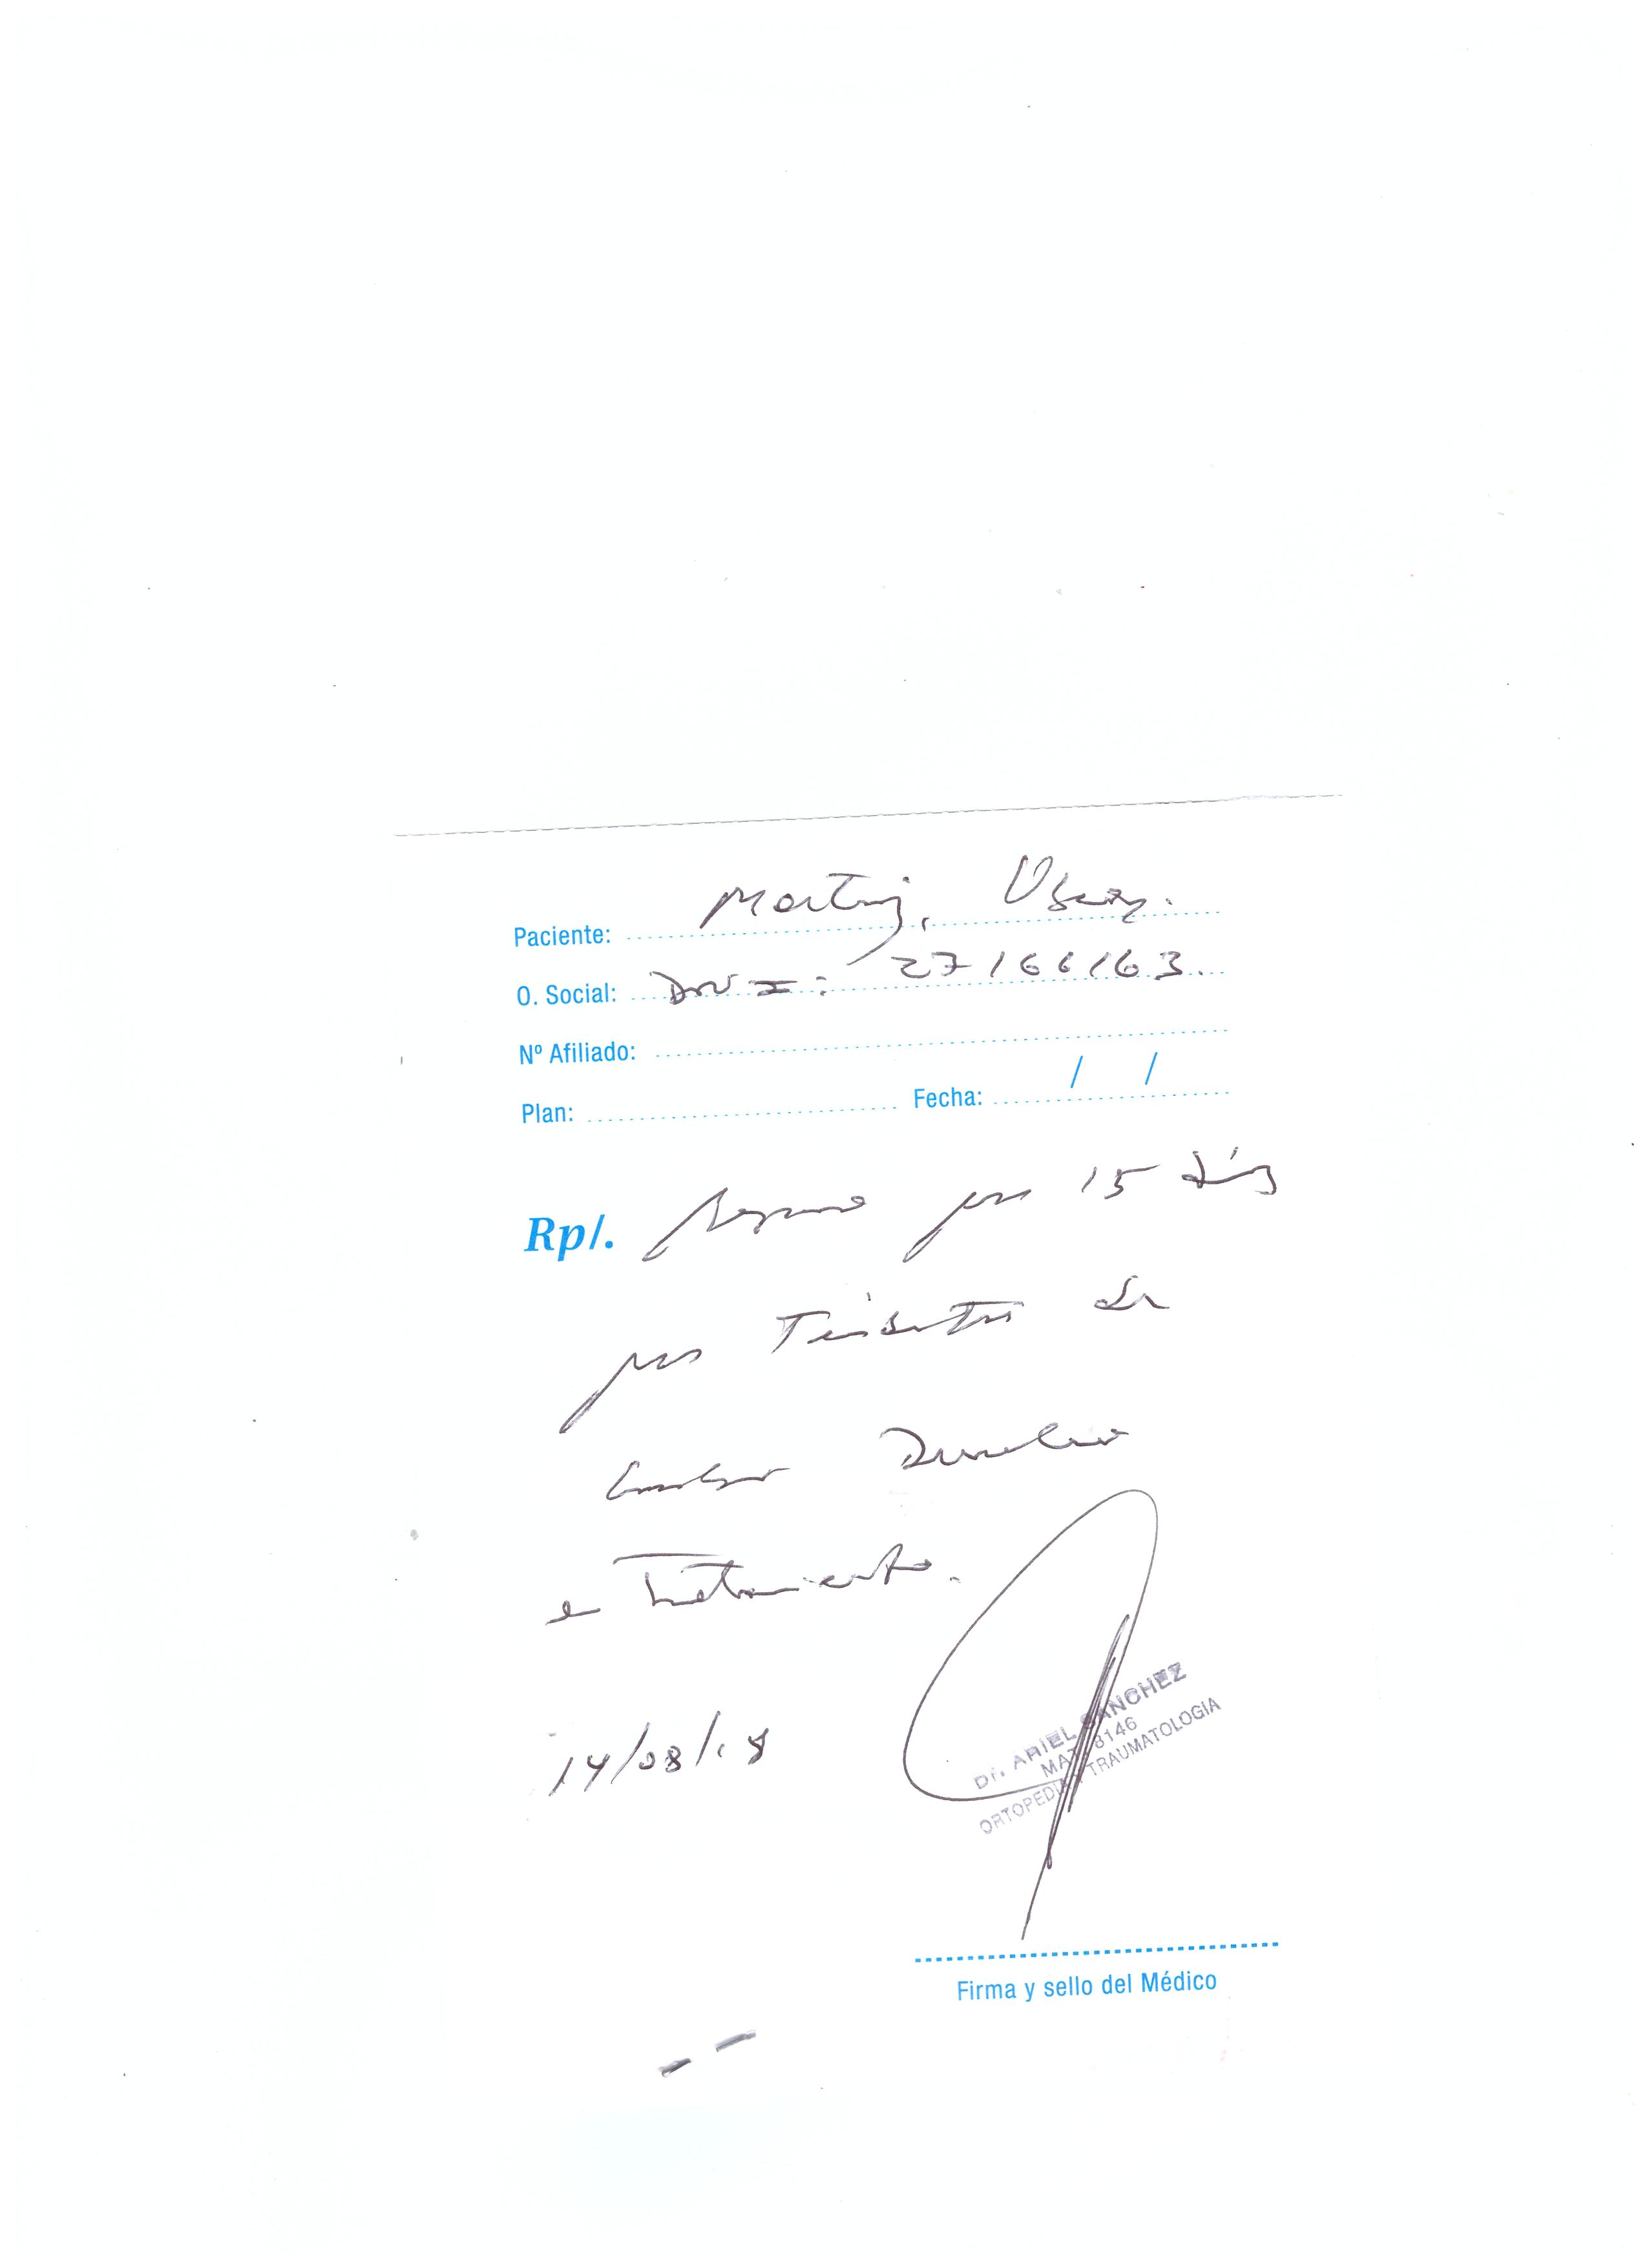 Paciente: Martinez, Oscar.
O. Social: DNI: 27166163.
Nº Afiliado:
Plan: Fecha: / /
Rp/. Reposo por 15 días
por de
hombro Derecho
en Tratamiento.
14/08/18
Dr. ARIEL SANCHEZ
MAT. 8146
ORTOPEDIA Y TRAUMATOLOGIA
Firma y sello del Médico